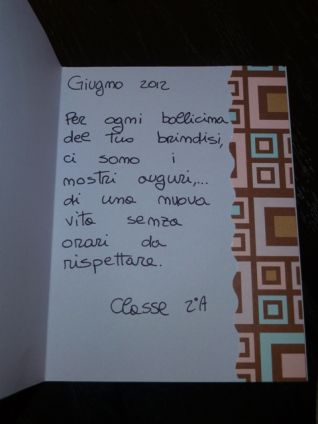 Giugno 2012
Per ogni bollicina
del Tuo brindisi,
ci sono i
nostri auguri,...
di una nuova
vita senza
orari da
rispettare.
Classe 2°A